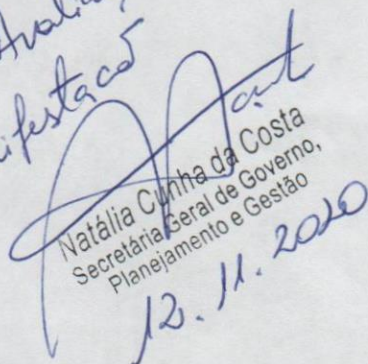 Avaliaç
ifestacõ
Natália Cunha da Costa
Secretária Geral de Governo,
Planejamento e Gestão
12.11.2020